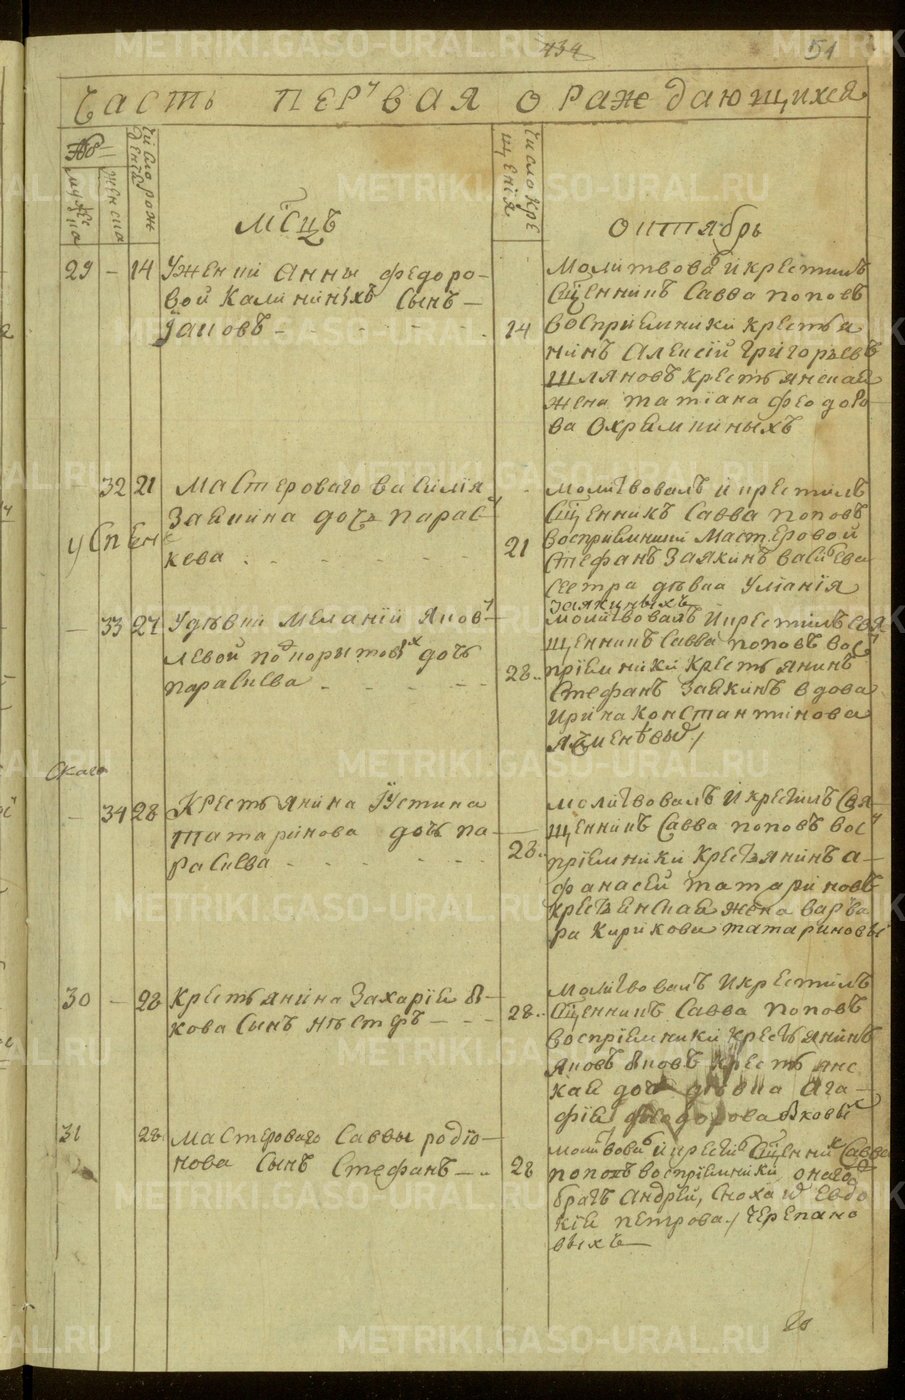 434
51
Часть первая о раждающихся
№
мужеска
женска
Число рождения
Мсцъ
Число крещенія
октябрь
29 – 14 Уженки Анны Федоро-
вой Калининыхъ сынъ –
Іаковъ – – –
14
молитвовалъ и крестилъ
Сщенникъ Савва поповъ
восприемники крестья
нинъ Алексій Григорьевъ
Шляновъ крестьянская
жена татіана феодоро
ва
32 21 мастероваго василія
Заякина дочь парас-
кева . – – –
успен
21
молитвовалъ и крестилъ
Сщенникъ Савва поповъ
восприемники мастеровой
Стефанъ Заякинъ васильева
сестра дѣвка Уліанія
Заякиныхъ
– 33 27 Удѣвки меланіи Яков-
левой подкорытовыхъ дочь
парасцева – – –
28
молитвовалъ и крестилъ свя
щенникъ Савва поповъ вос
пріемники крестьянинъ
Стефанъ Заякинъ вдова
Ирина константинова
– 34 28 крестьянина Іустина
татаринова дочь па-
расцева – – –
28
молитвовалъ и крестилъ Свя-
щенникъ Савва поповъ вос
пріемники крестьянинъ а-
фанасей татариновъ
крестьянская жена варва
ра кирикова татариновы
30 – 28 крестьянина Захаріи Я-
кова сынъ нѣстеръ – – –
28
молитвовалъ и крестилъ
Сщенникъ Савва поповъ
воспріемники крестьянинъ
Яковъ Яковъ крестьянс
кая дочь дѣвка Ага-
фія феодорова Яковых
31 28 мастероваго Саввы родіо-
нова сынъ Стефанъ – ..
28
молитвовалъ и крестилъ Сщенникъ Савва
поповъ воспріемники онаго
братъ Андрей, сноха Евдо
кія петрова / черепано
выхъ –